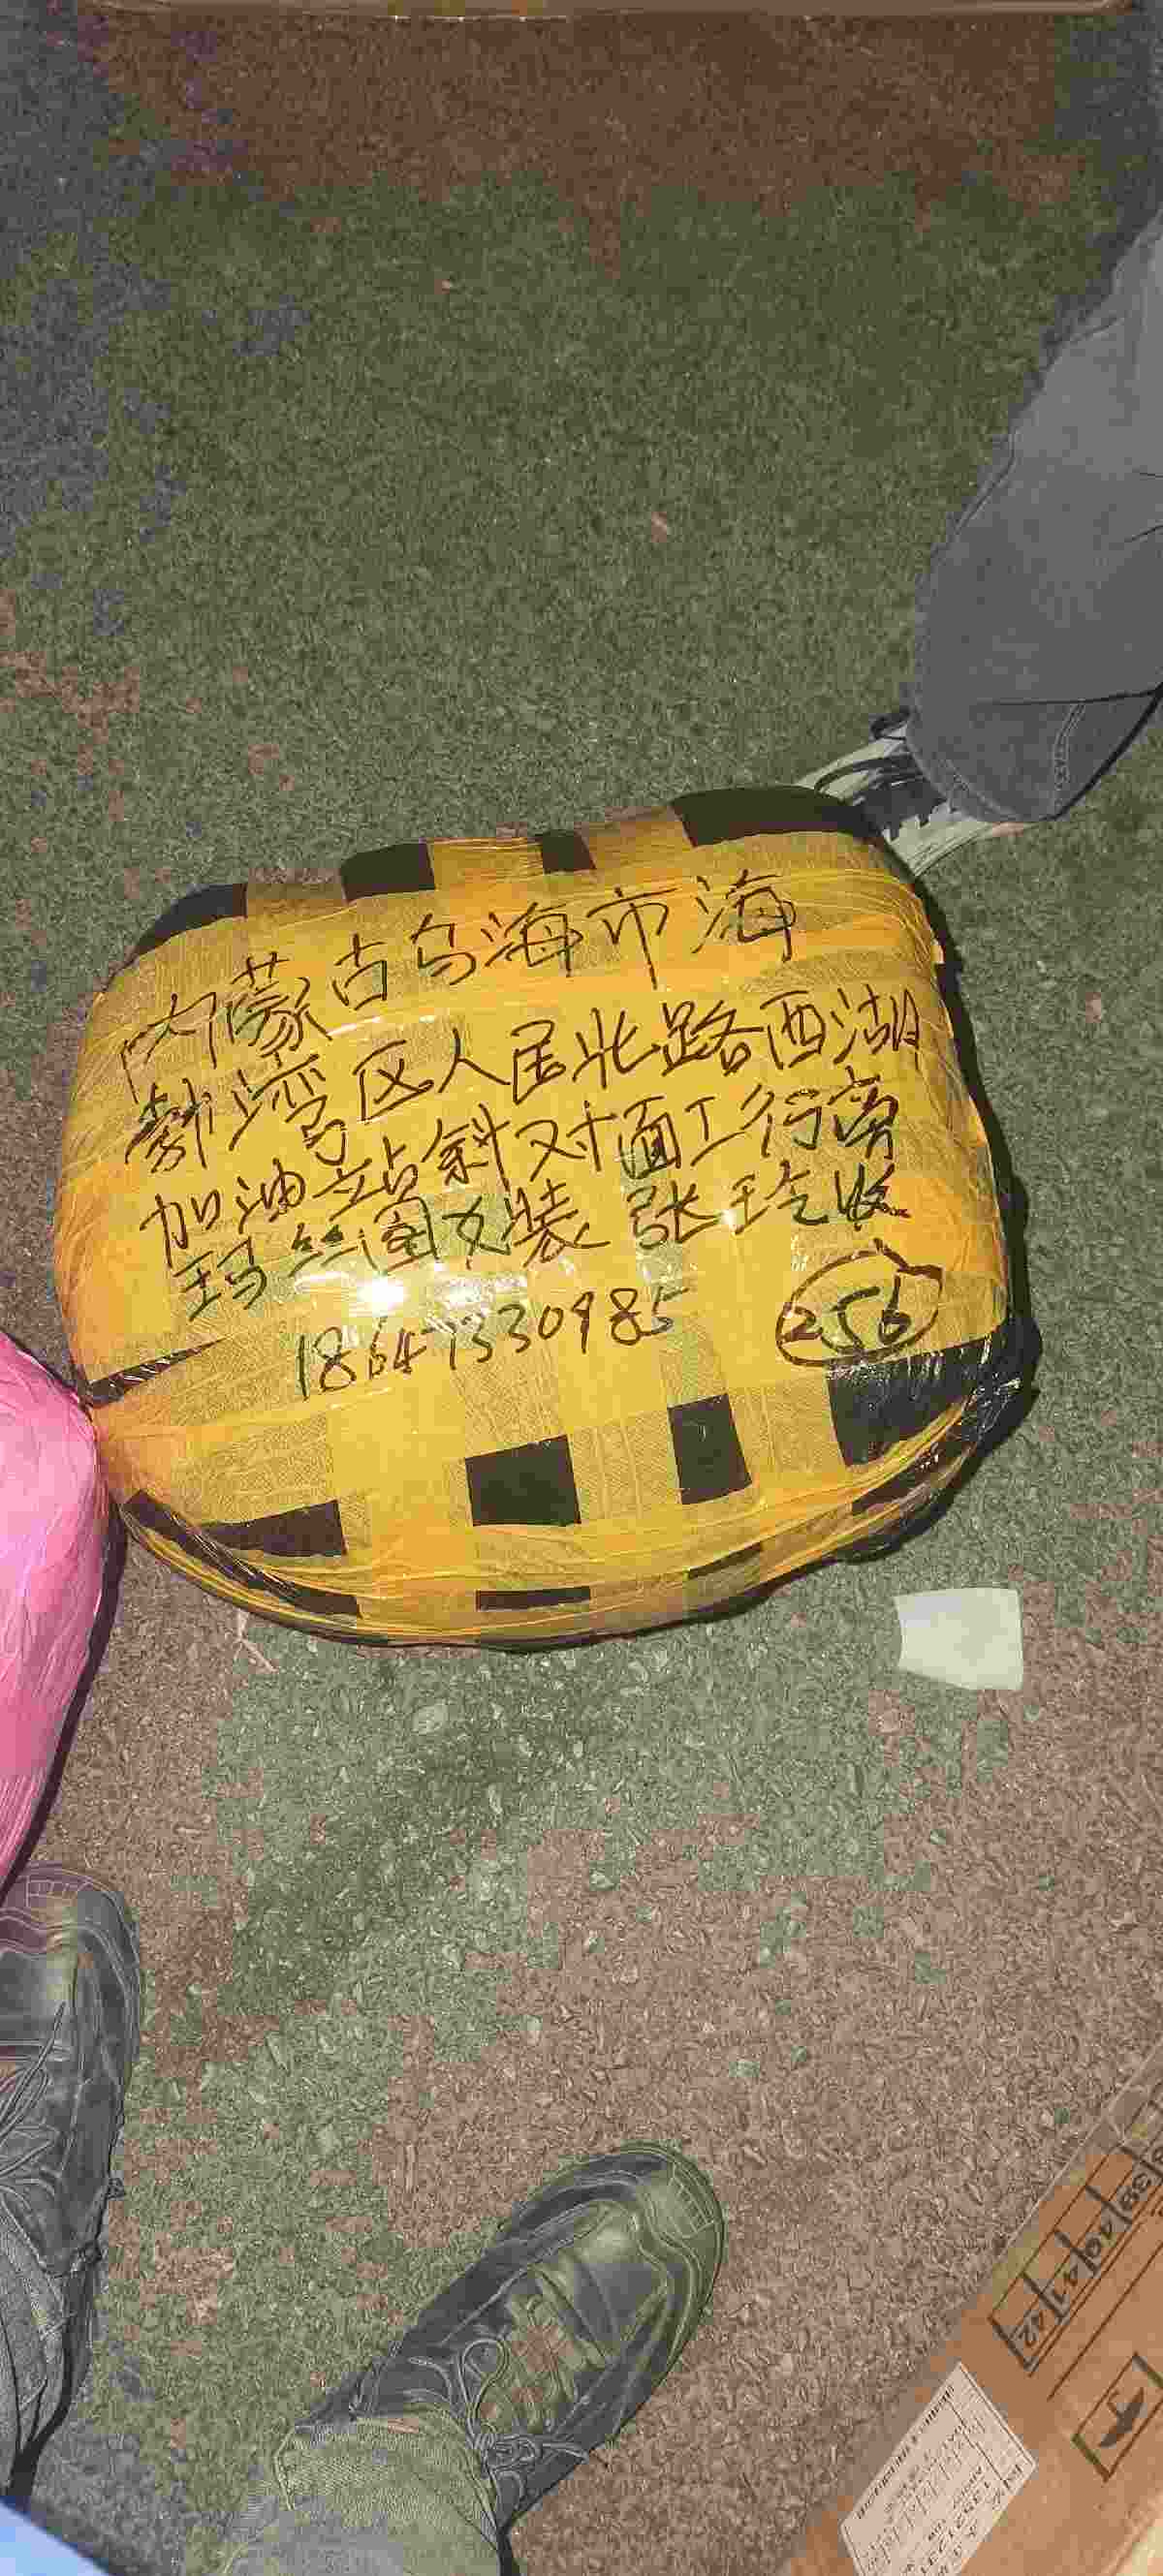 内蒙古乌海市海
勃湾区人民北路西湖
加油站斜对面工行旁
玛丝菌女装 张玲收
18647330985
256
38 40 41 42